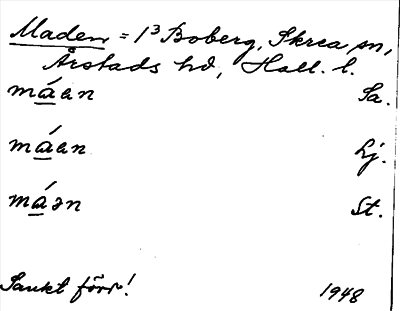 Maden = 1³ Boberg, Skrea sn,
Årstads hd, Hall. l.
máan Sa.
máan Lj.
máən St.
Sankt förr! 1948